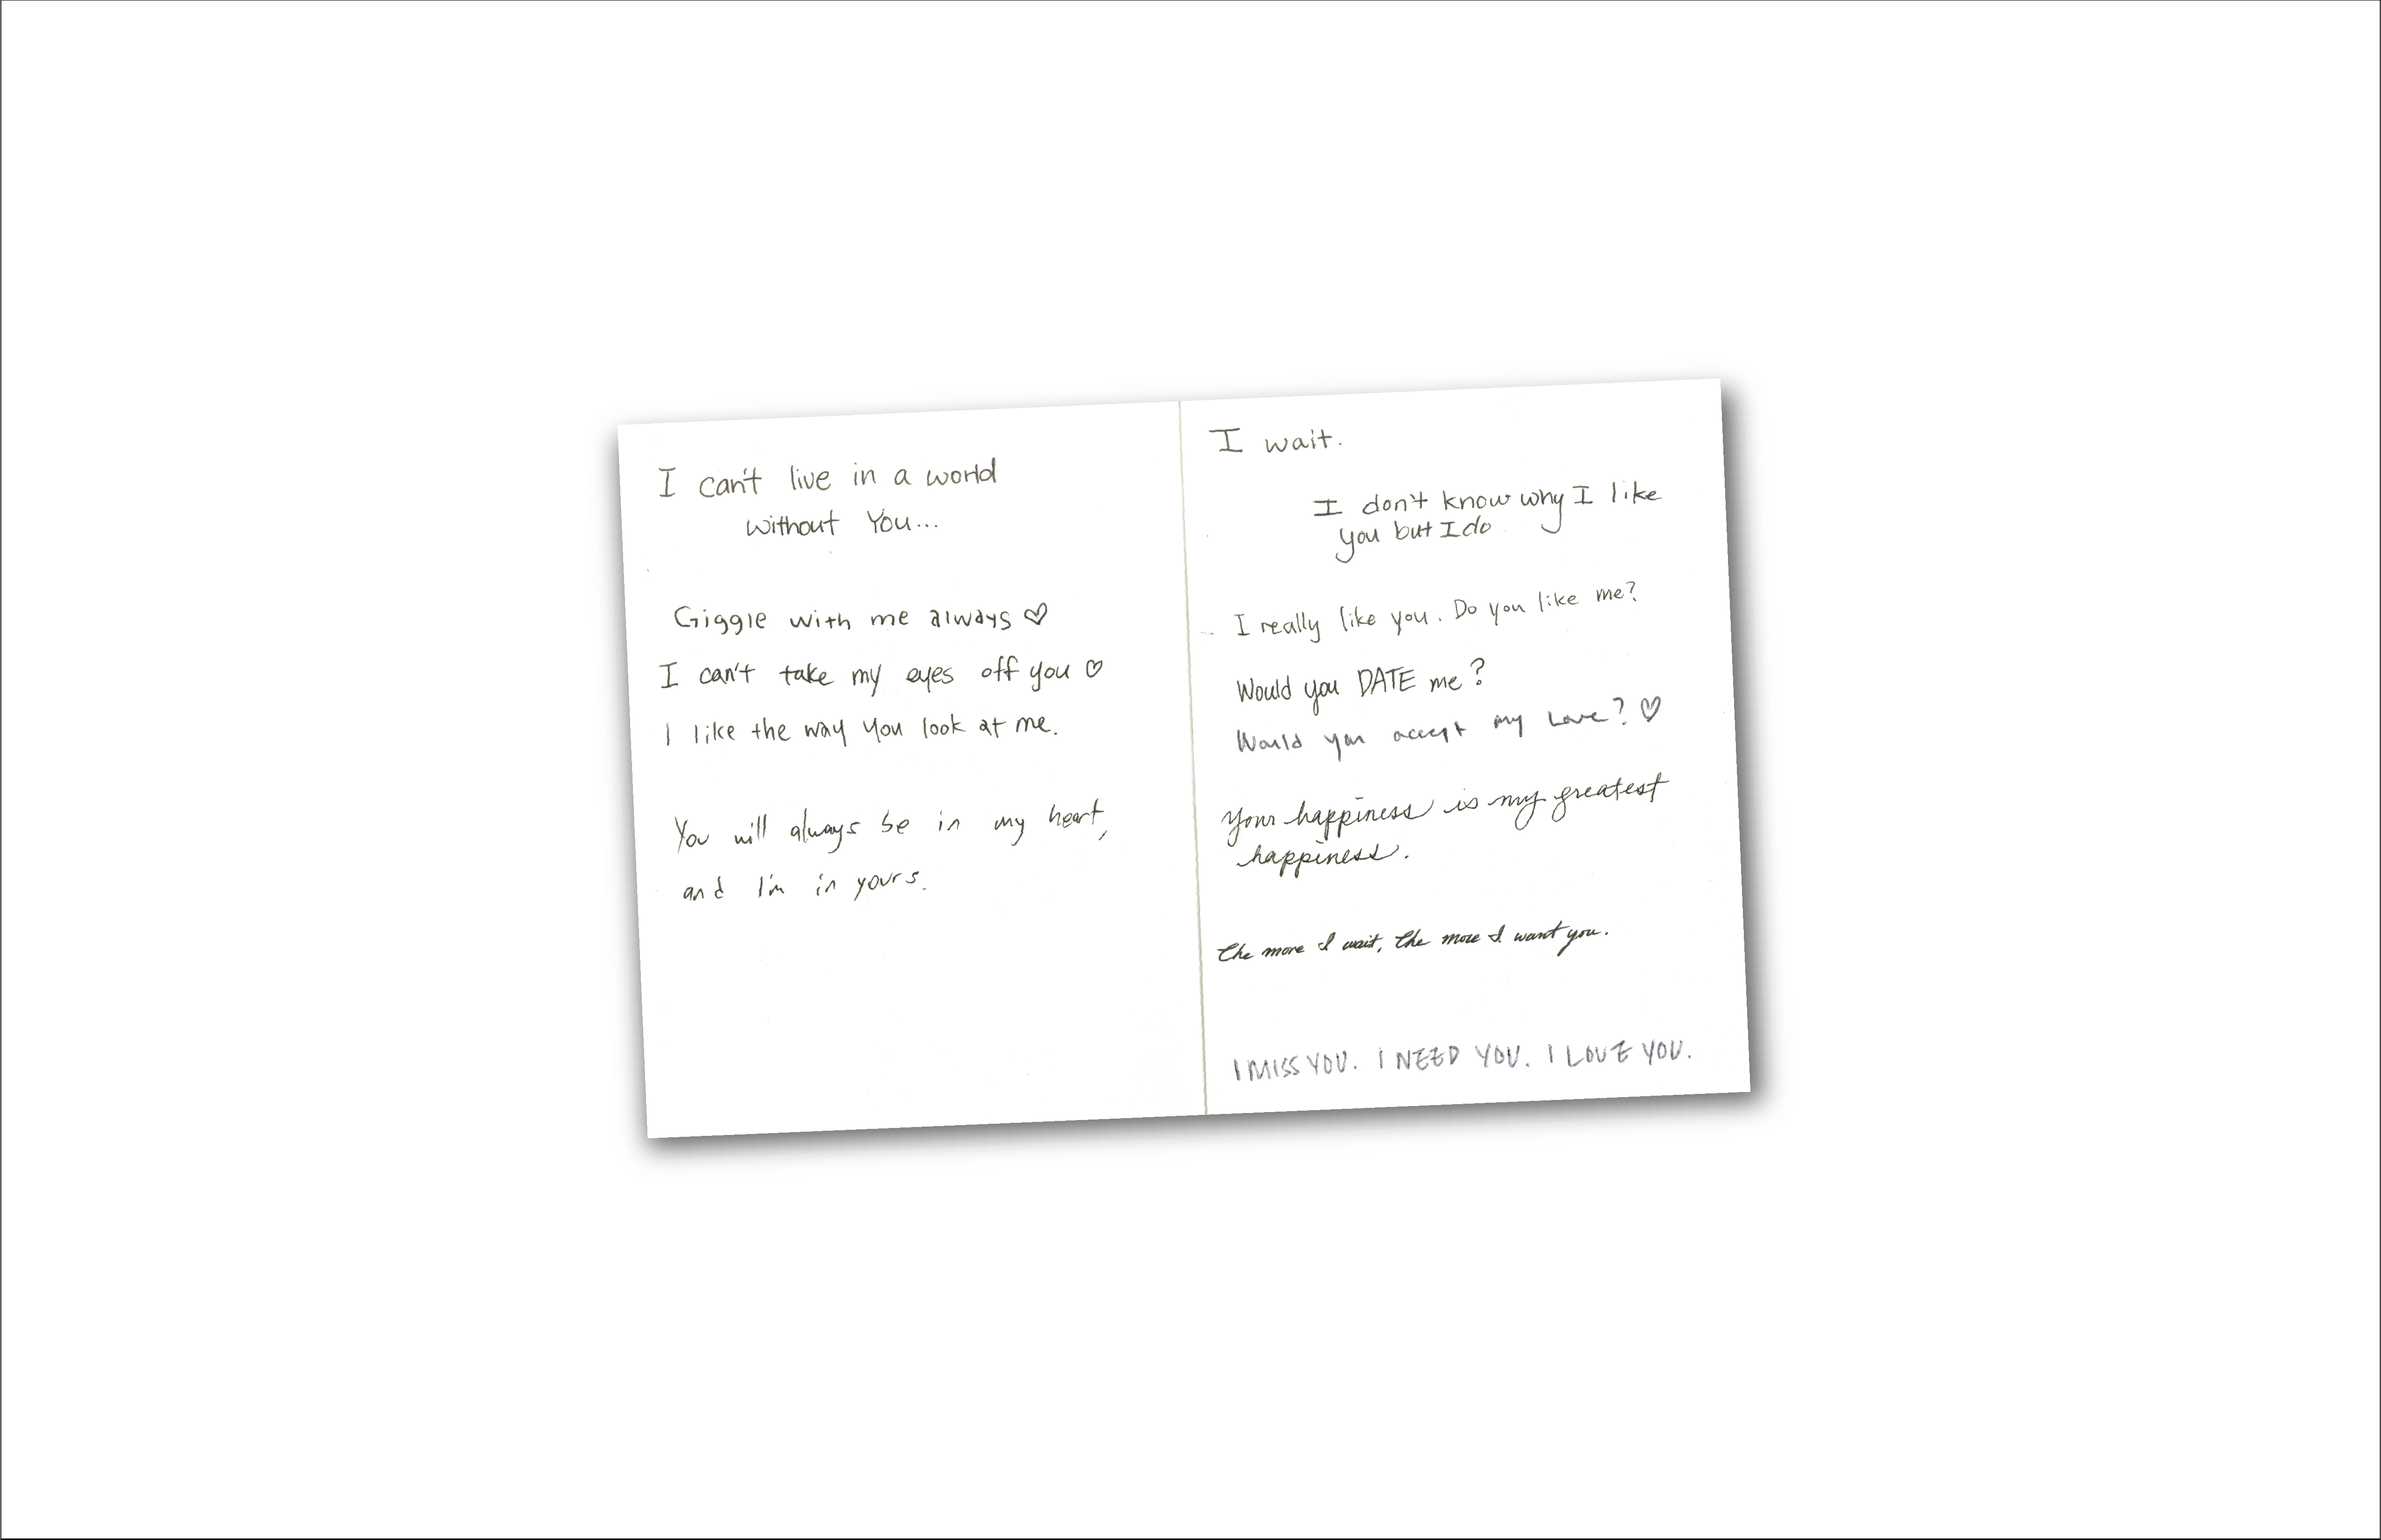 I can't live in a world
without You...
Giggle with me always ♡
I can't take my eyes off you ♡
I like the way you look at me.
You will always be in my heart,
and I'm in yours.
I wait.
I don't know why I like
you but I do
I really like you. Do you like me?
Would you DATE me?
Would you accept my Love? ♡
Your happiness is my greatest
happiness.
The more I wait, the more I want you.
I MISS YOU. I NEED YOU. I LOVE YOU.